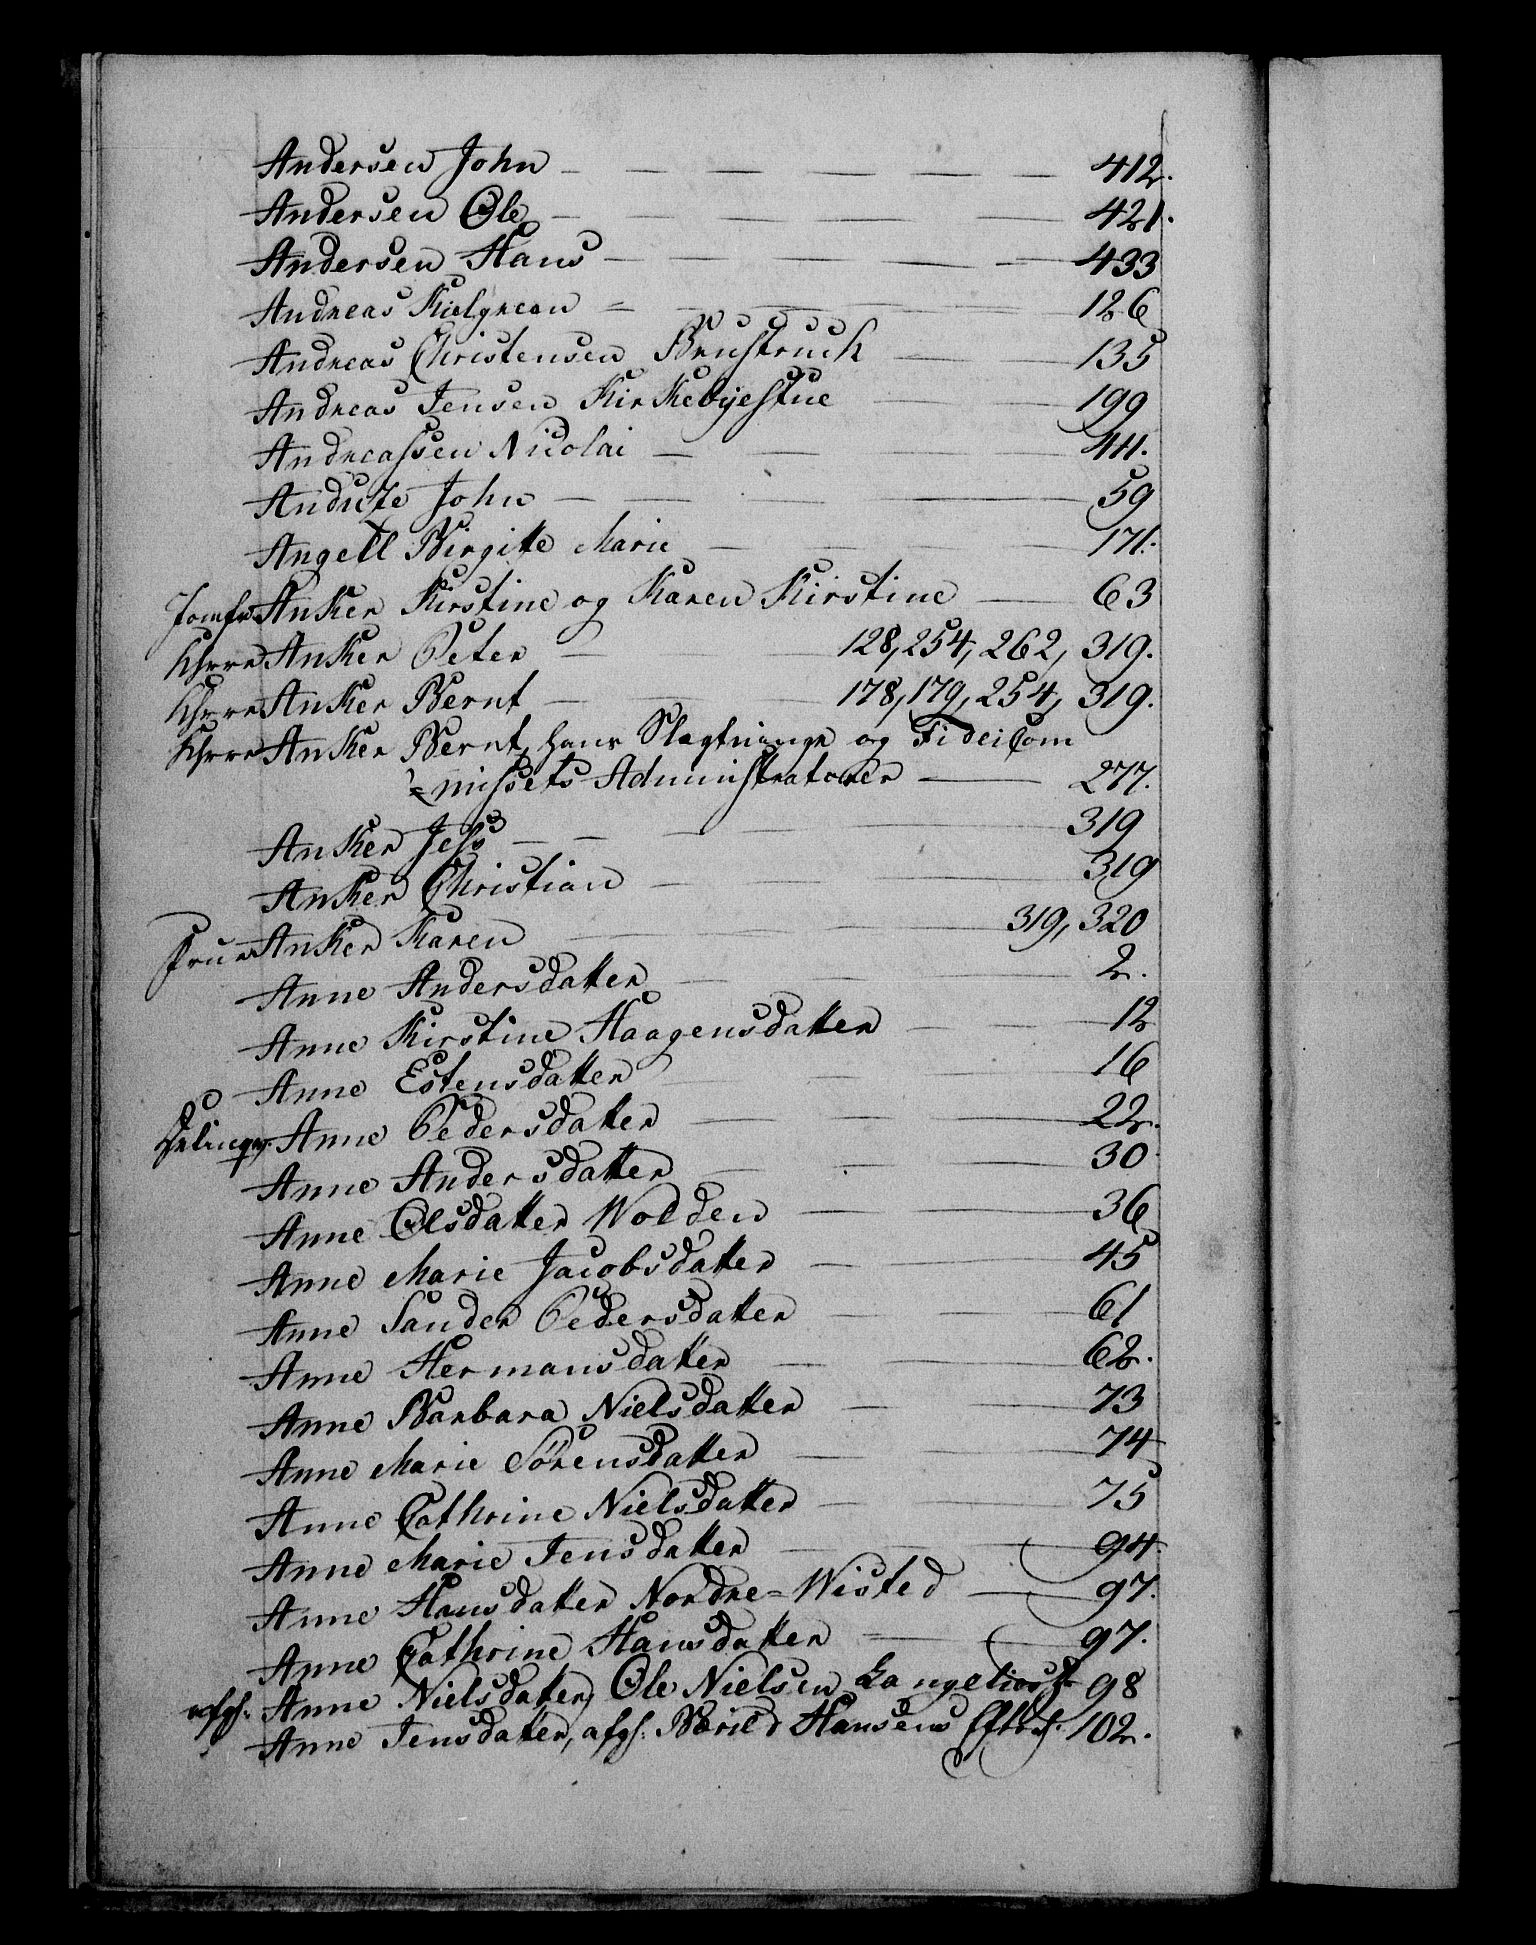 Andersen John — 412.
Andersen Ole — 421.
Andersen Hans — 433
Andreas Kielgreen — 126
Andreas Christensen Brustruch — 135
Andreas Jensen Kirkebyestue — 199
Andreassen Nicolai — 411.
Andute John — 59
Angell Birgitte Marie — 171.
Jomfr Anker Kirstine og Karen Kirstine — 63
Khrre Anker Peter — 128, 254, 262, 319.
Khrre Anker Bernt — 178, 179, 254, 319.
Khrre Anker Bernt, hans Slægtninge og Fideicom
=missets Administratorer — 277.
Anker Jess — 319
Anker Christian — 319
Frue Anker Karen — 319, 320
Anne Andersdatter — 2.
Anne Kirstine Haagensdatter — 12
Anne Estensdatter — 16
Anne Pedersdatter — 22.
Anne Andersdatter — 30
Anne Olsdatter Wolden — 36
Anne Marie Jacobsdatter — 45
Anne Sander Pedersdatter — 61
Anne Hermansdatter — 62.
Anne Barbara Nielsdatter — 73
Anne Marie Sörensdatter — 74
Anne Cathrine Nielsdatter — 75
Anne Marie Jensdatter — 94.
Anne Hansdatter Nordre=Wisted — 97.
Anne Cathrine Hansdatter — 97.
afgl. Anne Nielsdatter, Ole Nielsen 98
Anne Jensdatter, afgl. Borild Hansens Efterl. 102.